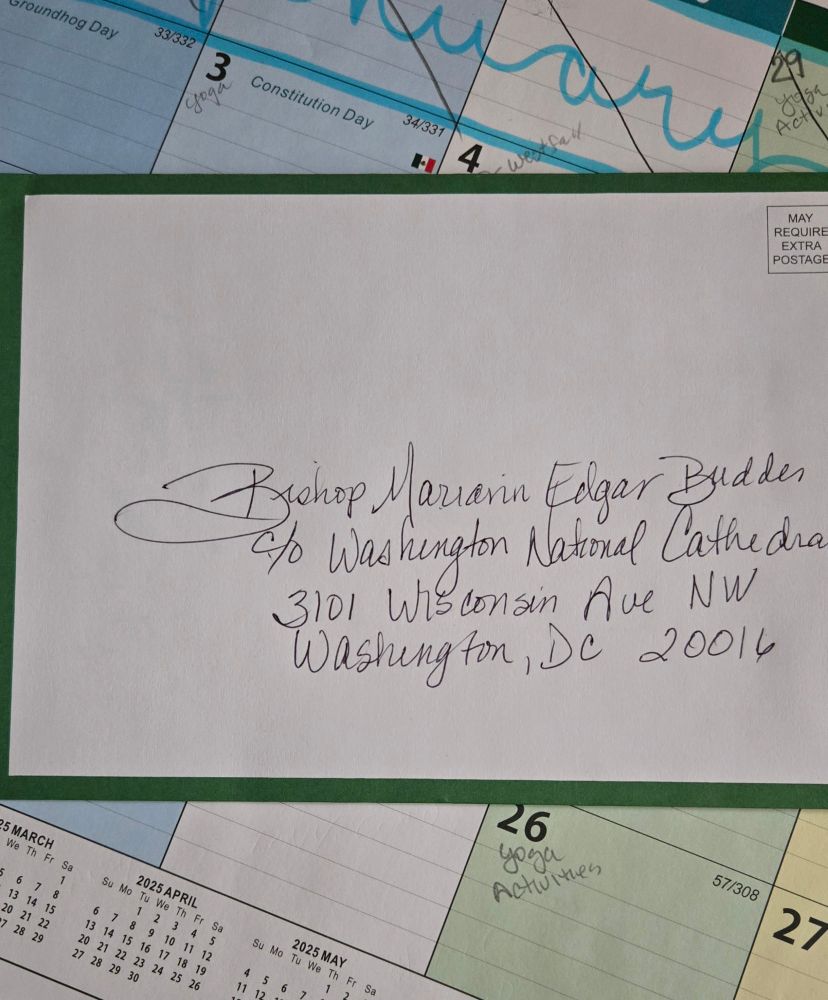 Groundhog Day
33/332
3
yoga
Constitution Day
34/331
4
29
yoga
MAY
REQUIRE
EXTRA
POSTAGE
Bishop Mariann Edgar Buddes
c/o Washington National Cathedra
3101 Wisconsin Ave NW
Washington, DC 20016
26
yoga
Activities
57/308
27
25 MARCH
We Th Fr Sa
1
5 6 7 8
13 14 15
20 21 22
27 28 29
2025 APRIL
Su Mo Tu We Th Fr Sa
1 2 3 4 5
6 7 8 9 10 11 12
13 14 15 16 17 18 19
20 21 22 23 24 25 26
27 28 29 30
2025 MAY
Su Mo Tu We Th Fr Sa
1 2
4 5 6 7
11 12